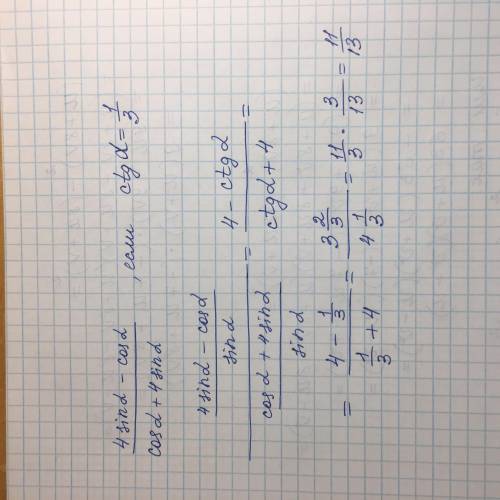 (4 sin α − cos α)/(cos α + 4 sin α) , если ctg α = 1/3
((4 sin α − cos α)/sin α)/((cos α + 4 sin α)/sin α) = (4 − ctg α)/(ctg α + 4) =
= (4 − 1/3)/(1/3 + 4) = (3 2/3)/(4 1/3) = 11/3 · 3/13 = 11/13